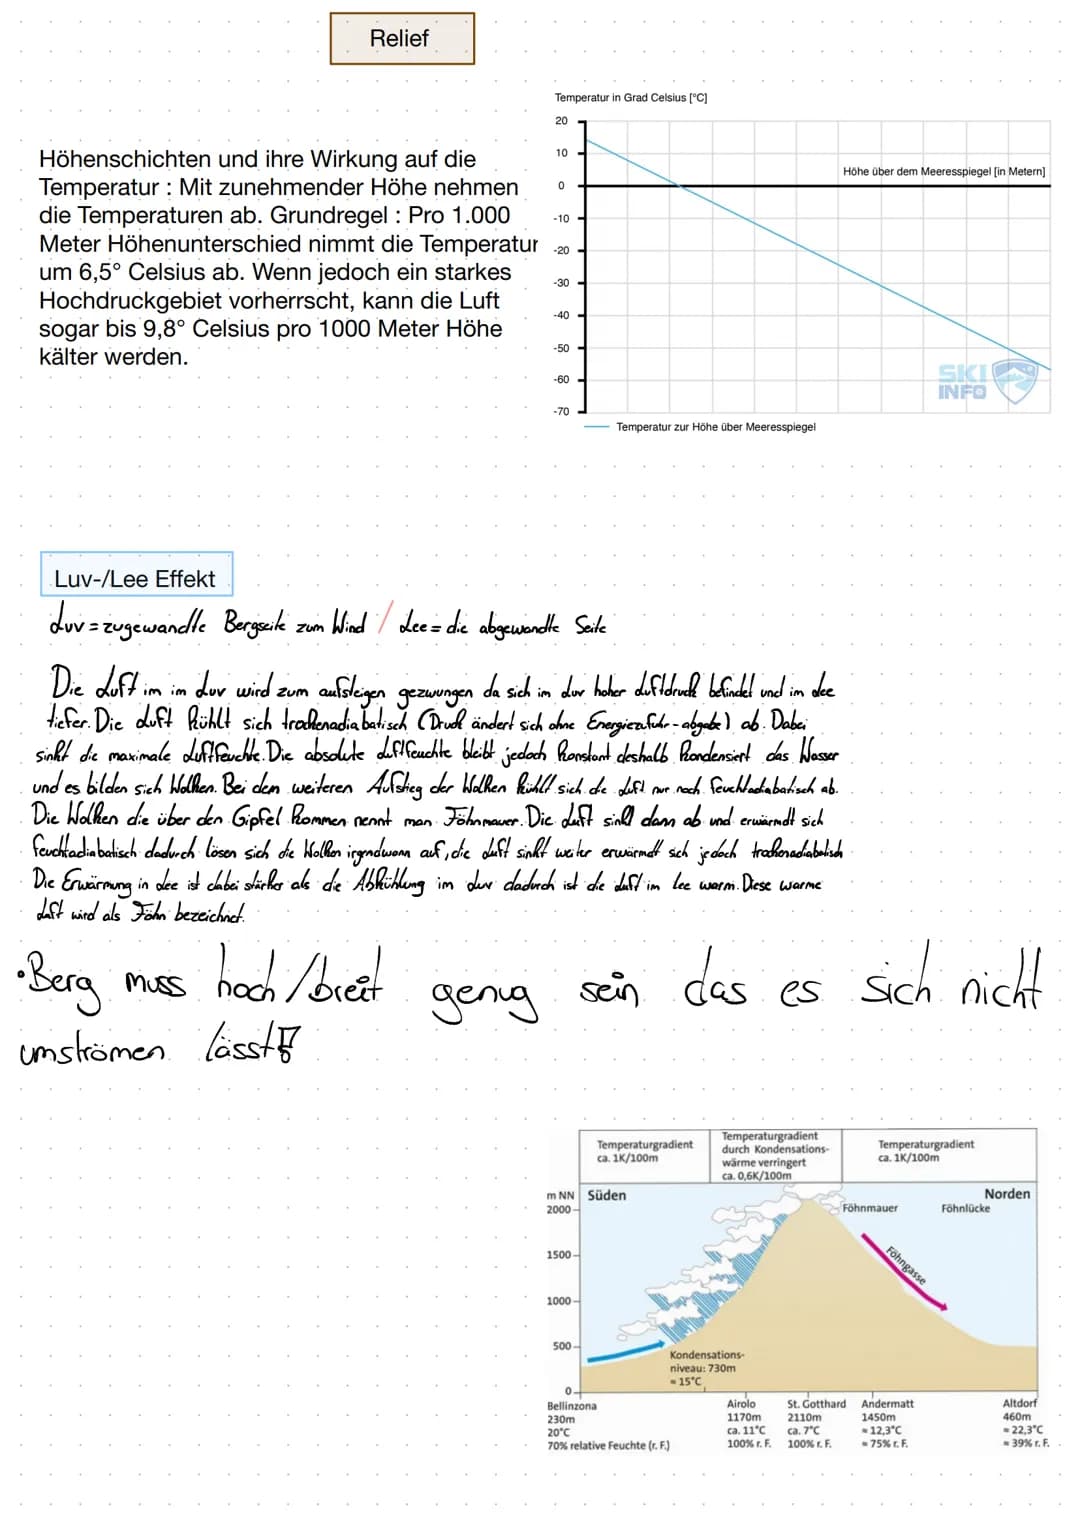 Relief
Temperatur in Grad Celsius [°C]
20
10
0
-10
-20
-30
-40
-50
-60
-70
Höhe über dem Meeresspiegel [in Metern]
SKI
INFO
Temperatur zur Höhe über Meeresspiegel
Höhenschichten und ihre Wirkung auf die
Temperatur : Mit zunehmender Höhe nehmen
die Temperaturen ab. Grundregel : Pro 1.000
Meter Höhenunterschied nimmt die Temperatur
um 6,5° Celsius ab. Wenn jedoch ein starkes
Hochdruckgebiet vorherrscht, kann die Luft
sogar bis 9,8° Celsius pro 1000 Meter Höhe
kälter werden.
Luv-/Lee Effekt
Luv = zugewandte Bergseite zum Wind / Lee = die abgewandte Seite
Die Luft im im Luv wird zum aufsteigen gezwungen da sich im Luv hoher Luftdruck befindet und im Lee
tiefer. Die Luft kühlt sich trockenadiabatisch (Druck ändert sich ohne Energiezufuhr-abgabe) ab. Dabei
sinkt die maximale Luftfeuchte. Die absolute Luftfeuchte bleibt jedoch konstant deshalb kondensiert das Wasser
und es bilden sich Wolken. Bei dem weiteren Aufstieg der Wolken kühlt sich die Luft nur noch feuchtadiabatisch ab.
Die Wolken die über den Gipfel kommen nennt man Föhnmauer. Die Luft sinkt dann ab und erwärmdt sich
feuchtadiabatisch dadurch lösen sich die Wolken irgendwann auf, die Luft sinkt weiter erwärmdt sich jedoch trockenadiabatisch
Die Erwärmung in Lee ist dabei stärker als die Abkühlung im Luv dadurch ist die Luft im Lee warm. Diese warme
Luft wird als Föhn bezeichnet.
•Berg muss hoch/breit genug sein das es sich nicht
umströmen lässt!
Temperaturgradient
ca. 1K/100m
Temperaturgradient
durch Kondensations-
wärme verringert
ca. 0,6K/100m
Temperaturgradient
ca. 1K/100m
m NN
Süden
Norden
2000
1500
1000
500
0
Föhnmauer
Föhnlücke
Föhngasse
Kondensations-
niveau: 730m
≈ 15°C
Bellinzona
230m
20°C
70% relative Feuchte (r. F.)
Airolo
1170m
ca. 11°C
100% r. F.
St. Gotthard
2110m
ca. 7°C
100% r. F.
Andermatt
1450m
≈ 12,3°C
≈ 75% r. F.
Altdorf
460m
≈ 22,3°C
≈ 39% r. F.